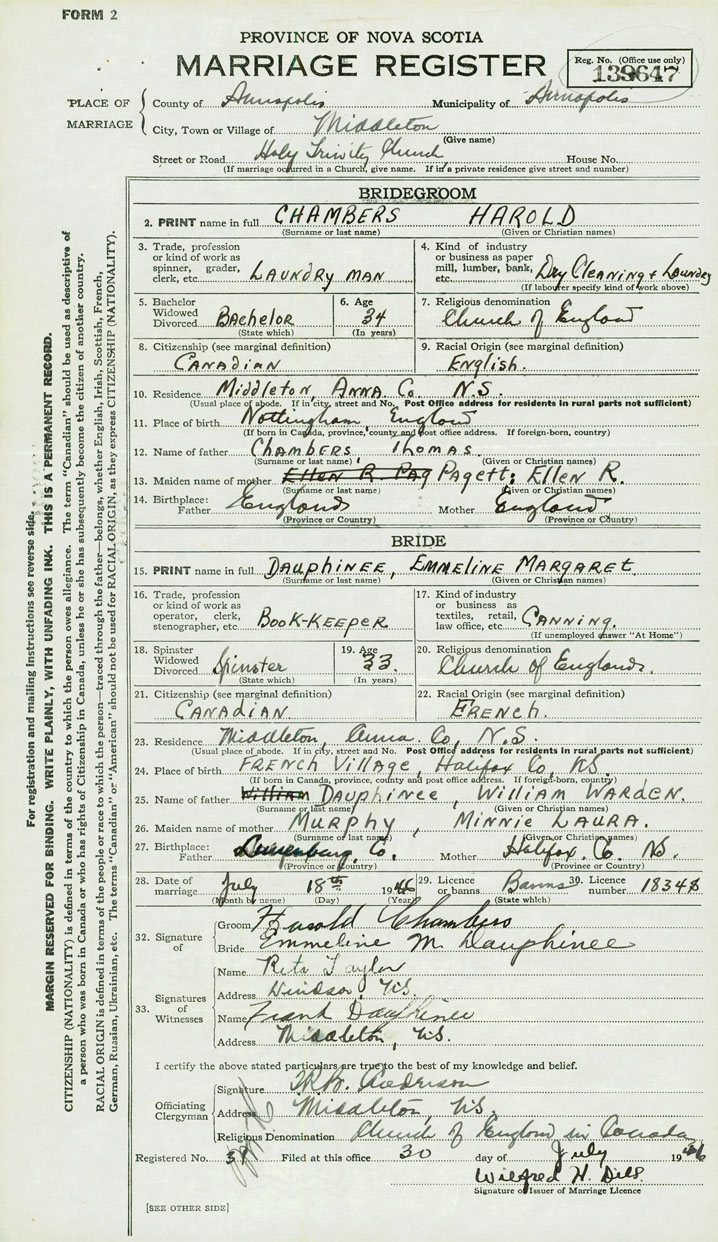 FORM 2
PROVINCE OF NOVA SCOTIA
MARRIAGE REGISTER
Reg. No. (Office use only)
139647
PLACE OF MARRIAGE
County of Annapolis Municipality of Annapolis
City, Town or Village of Middleton
(Give name)
Street or Road Holy Trinity Church House No.
(If marriage occurred in a Church, give name. If in a private residence give street and number)
BRIDEGROOM
2. PRINT name in full CHAMBERS HAROLD
(Surname or last name) (Given or Christian names)
3. Trade, profession or kind of work as spinner, grader, clerk, etc. LAUNDRY MAN
4. Kind of industry or business as paper mill, lumber, bank, etc. Dry Cleaning + Laundry
(If labourer specify kind of work above)
5. Bachelor Widowed Divorced BAChELOR
(State which)
6. Age 34
(In years)
7. Religious denomination Church of England
8. Citizenship (see marginal definition) CANADIAN
9. Racial Origin (see marginal definition) ENGLISH.
10. Residence Middleton ANNA. Co. N.S.
(Usual place of abode. If in city, street and No. Post Office address for residents in rural parts not sufficient)
11. Place of birth Nottingham, England
(If born in Canada, province, county and post office address. If foreign-born, country)
12. Name of father CHAMBERS, THOMAS.
(Surname or last name) (Given or Christian names)
13. Maiden name of mother Ellen R. Pag Pagett; Ellen R.
(Surname or last name) (Given or Christian names)
14. Birthplace: Father England Mother England
(Province or Country) (Province or Country)
BRIDE
15. PRINT name in full DAUPHINEE, EMMELINE MARGARET.
(Surname or last name) (Given or Christian names)
16. Trade, profession or kind of work as operator, clerk, stenographer, etc. BOOK-KEEPER
17. Kind of industry or business as textiles, retail, law office, etc. CANNING.
(If unemployed answer "At Home")
18. Spinster Widowed Divorced Spinster
(State which)
19. Age 33.
(In years)
20. Religious denomination Church of England.
21. Citizenship (see marginal definition) CANADIAN
22. Racial Origin (see marginal definition) FRENCH.
23. Residence Middleton, Anna. Co, N.S.
(Usual place of abode. If in city, street and No. Post Office address for residents in rural parts not sufficient)
24. Place of birth FRENCH VILLAGE, Halifax Co, N.S.
(If born in Canada, province, county and post office address. If foreign-born, country)
25. Name of father William DAUPHINEE, WILLIAM WARDEN.
(Surname or last name) (Given or Christian names)
26. Maiden name of mother MURPHY, MINNIE LAURA.
(Surname or last name) (Given or Christian names)
27. Birthplace: Father Lunenburg Co. Mother Halifax. Co. N.S.
(Province or Country) (Province or Country)
28. Date of marriage July 18th 1946
(Month by name) (Day) (Year)
29. Licence or banns Banns
(State which)
30. Licence number 18348
32. Signature of
Groom Harold Chambers
Bride Emmeline M. Dauphinee
33. Signatures of Witnesses
Name Rita Taylor
Address Windsor, N.S.
Name Frank Dauphinee
Address Middleton, N.S.
I certify the above stated particulars are true to the best of my knowledge and belief.
Officiating Clergyman
Signature
Address Middleton, N.S.
Religious Denomination Church of England in Canada
Registered No. Filed at this office 30 day of July 1946
Wilfred H. Dills
Signature of Issuer of Marriage Licence
[SEE OTHER SIDE]
For registration and mailing instructions see reverse side.
MARGIN RESERVED FOR BINDING. WRITE PLAINLY, WITH UNFADING INK. THIS IS A PERMANENT RECORD.
CITIZENSHIP (NATIONALITY) is defined in terms of the country to which the person owes allegiance. The term "Canadian" should be used as descriptive of
a person who was born in Canada or who has rights of Citizenship in Canada, unless he or she has subsequently become the citizen of another country.
RACIAL ORIGIN is defined in terms of the people or race to which the person—traced through the father—belongs, whether English, Irish, Scottish, French,
German, Russian, Ukrainian, etc. The terms "Canadian" or "American" should not be used for RACIAL ORIGIN, as they express CITIZENSHIP (NATIONALITY).